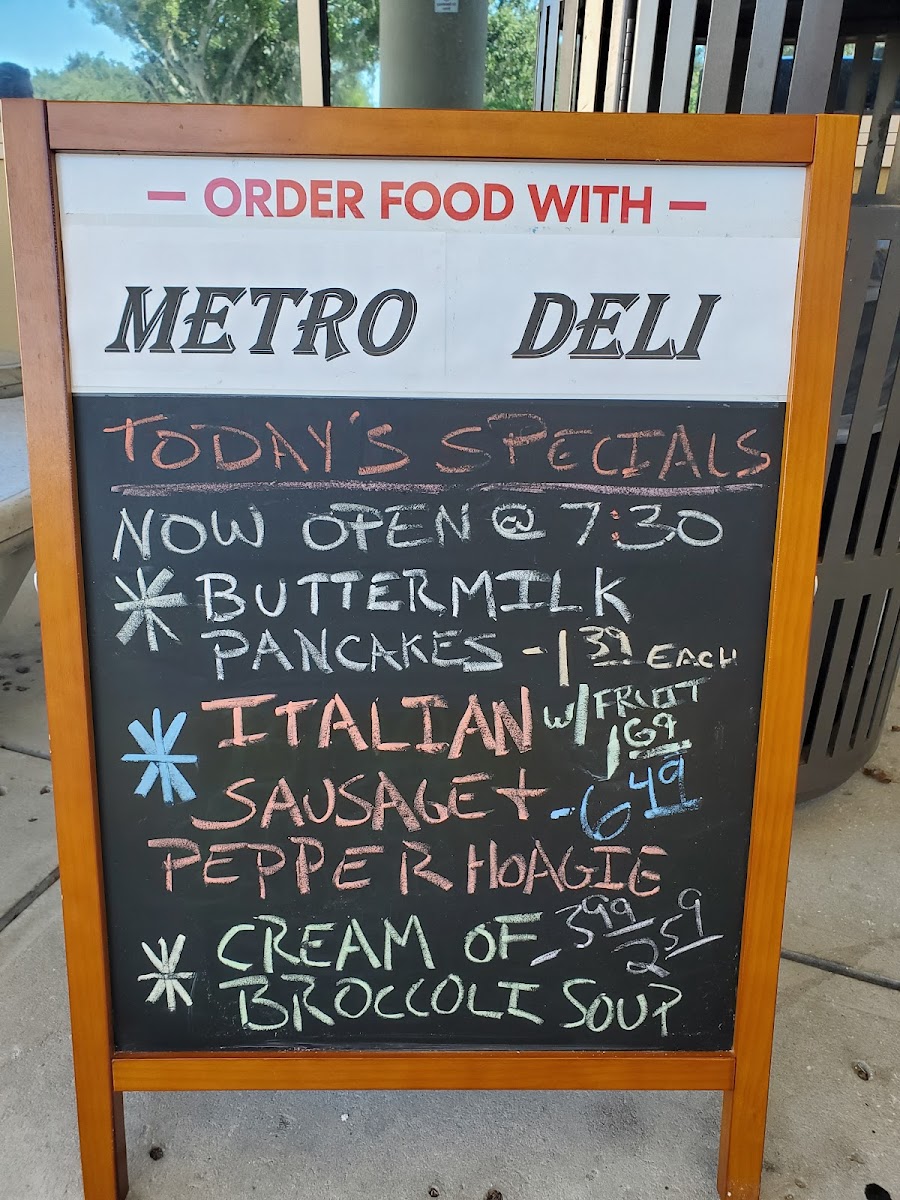 — ORDER FOOD WITH —
METRO DELI
TODAY'S SPECIALS
NOW OPEN @ 7:30
* BUTTERMILK
PANCAKES - 1 39 EACH
W/ FRUIT
1 69
* ITALIAN
SAUSAGE + - 6 49
PEPPER HOAGIE
* CREAM OF - 3 99 2 59
BROCCOLI SOUP